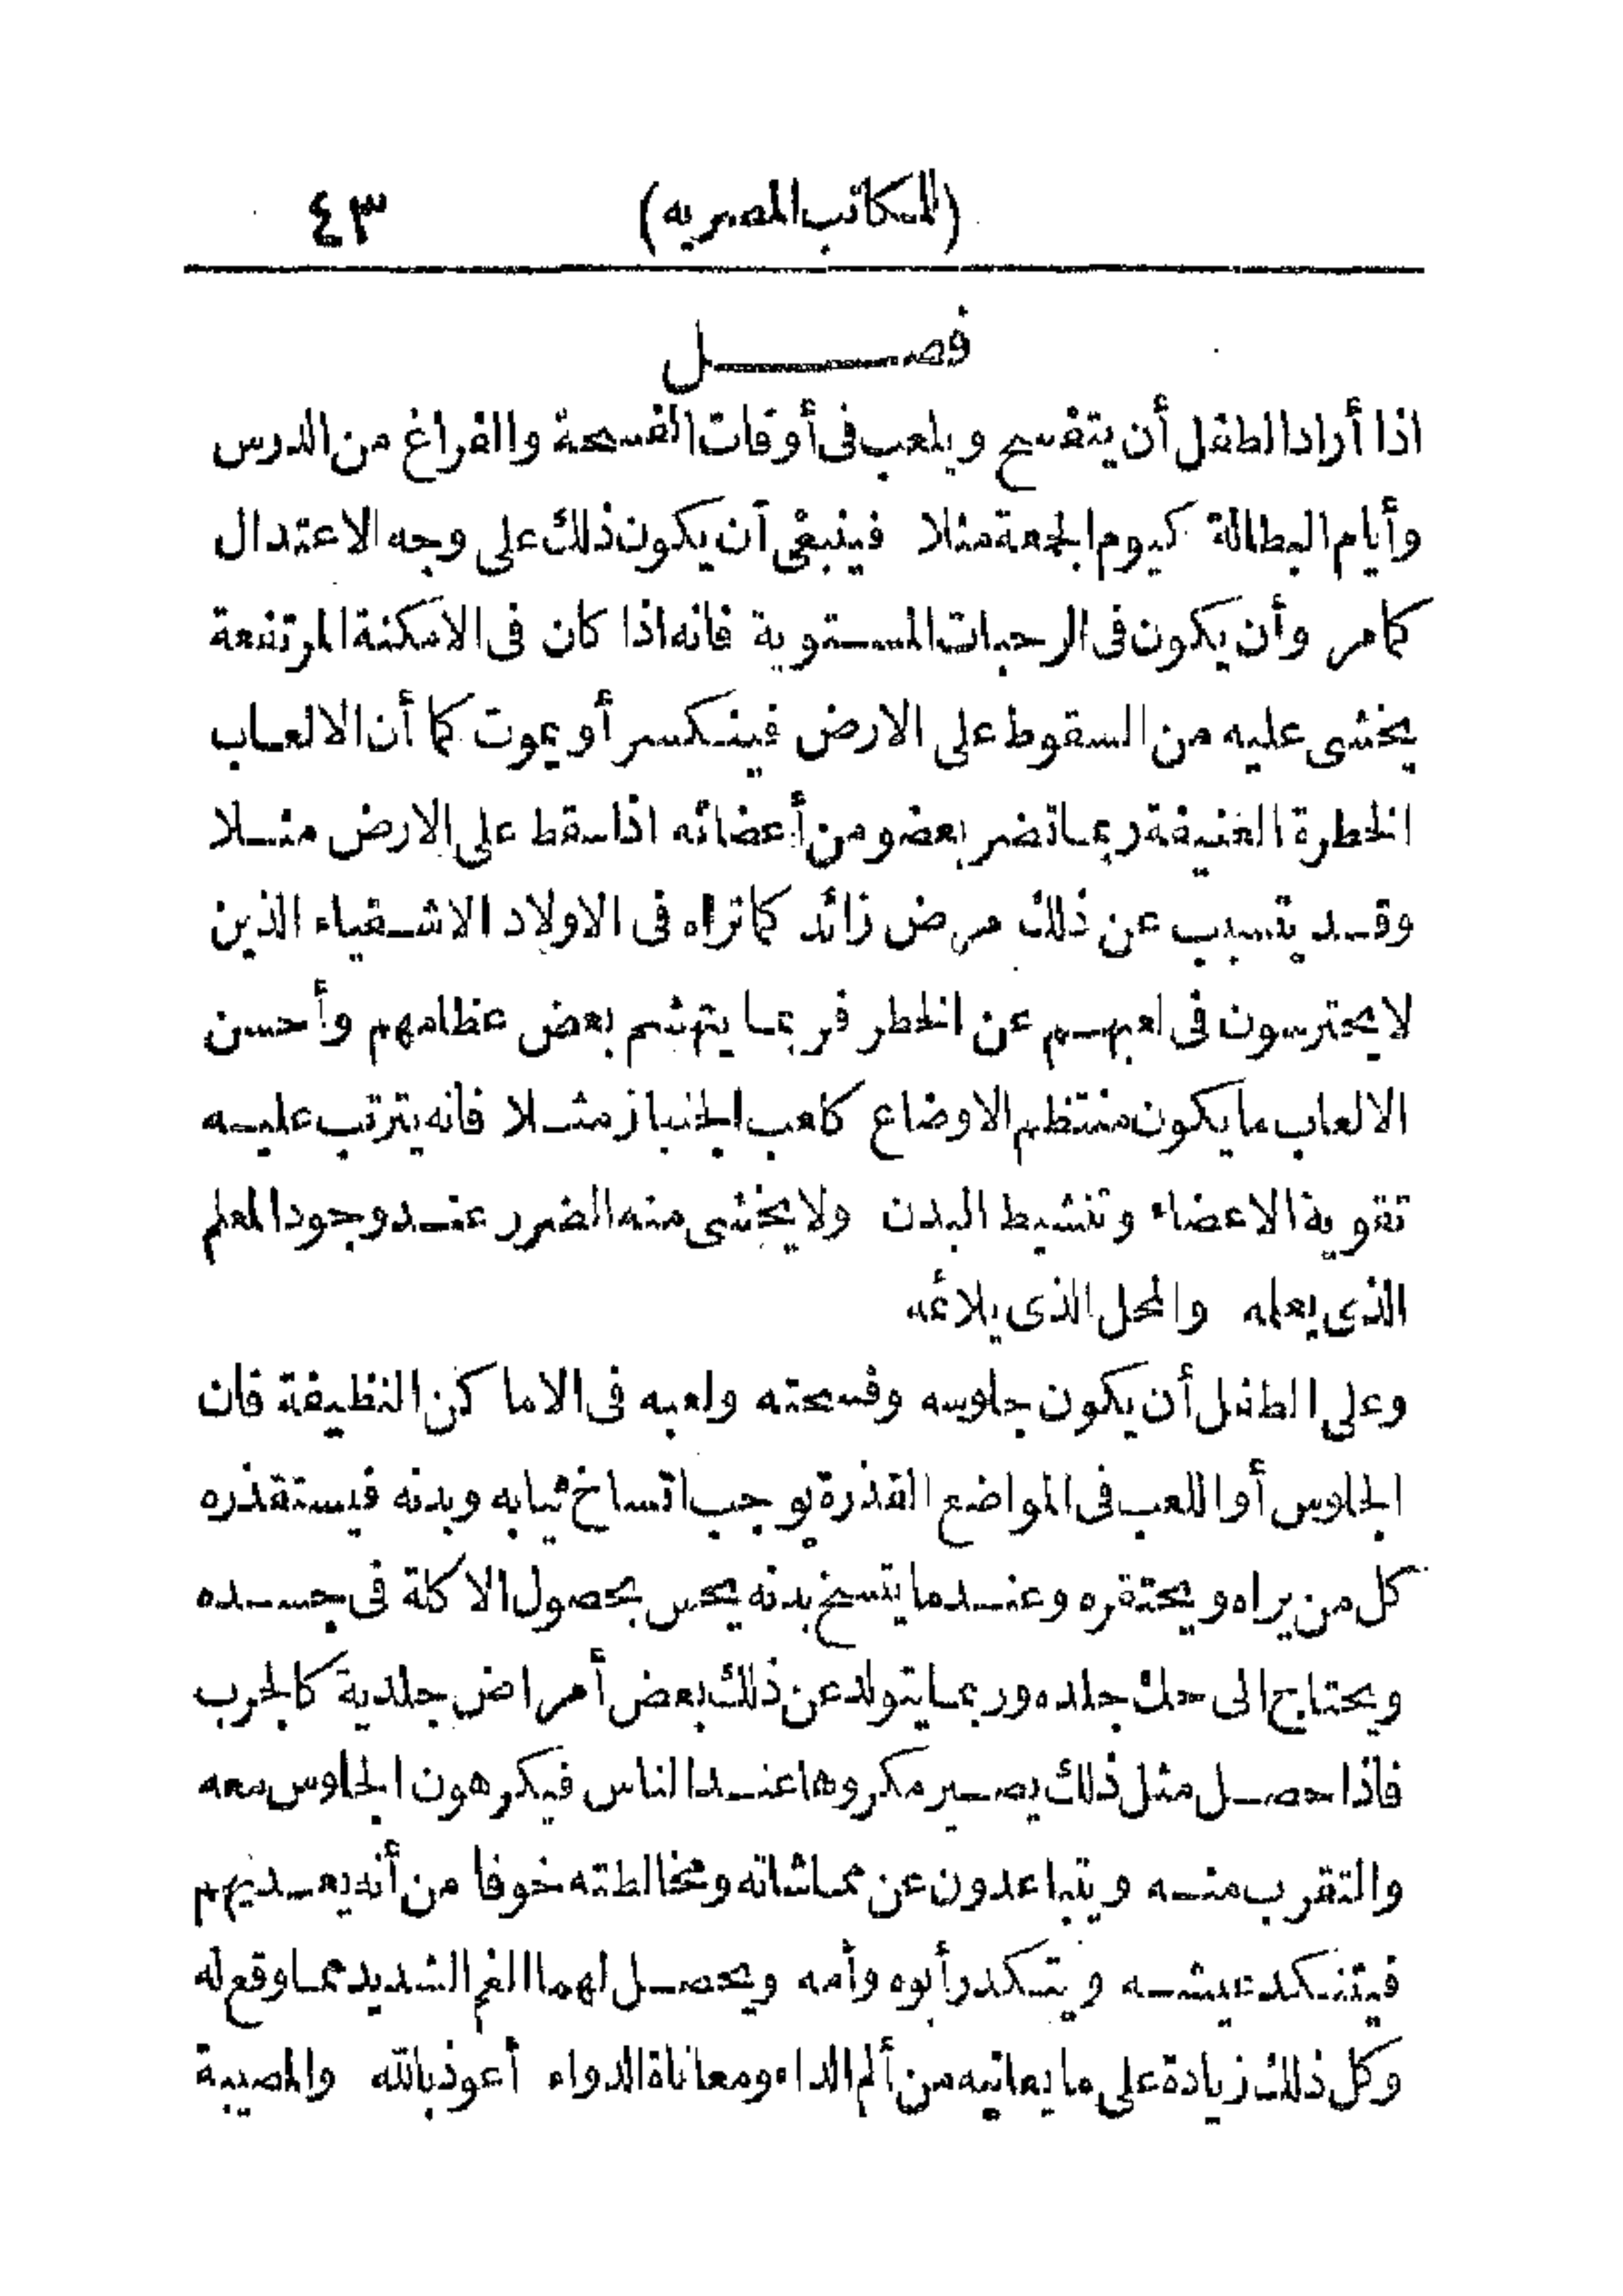 (المكاتب المصريه) ٤٣
فصل
اذا أراد الطفل أن يتفسح ويلعب فى أوقات الفسحة والفراغ من الدرس
وأيام البطالة كيوم الجمعة مثلا فينبغى أن يكون ذلك على وجه الاعتدال
كمامر وأن يكون فى الرحبات المستوية فانه اذا كان فى الامكنة المرتفعة
يخشى عليه من السقوط على الارض فينكسر أو يموت كما أن الالعاب
الخطرة العنيفة ربما تضر بعضو من أعضائه اذا سقط على الارض مثلا
وقد يتسبب عن ذلك مرض زائد كما تراه فى الاولاد الاشقياء الذين
لا يحترسون فى لعبهم عن الخطر فربما يتهشم بعض عظامهم وأحسن
الالعاب ما يكون منتظم الاوضاع كلعب الجنباز مثلا فانه يترتب عليه
تقوية الاعضاء وتنشيط البدن ولا يخشى منه الضرر عند وجود المعلم
الذى يعلمه والمحل الذى يلائمه
وعلى الطفل أن يكون جلوسه وفسحته ولعبه فى الاماكن النظيفة فان
الجلوس أو اللعب فى المواضع القذرة يوجب اتساخ ثيابه وبدنه فيستقذره
كل من يراه ويحتقره وعندما يتسخ بدنه يحس بحصول الاكلة فى جسده
ويحتاج الى حك جلده وربما يتولد عن ذلك بعض أمراض جلدية كالجرب
فاذا حصل مثل ذلك يصير مكروها عند الناس فيكرهون الجلوس معه
والتقرب منه ويتباعدون عن مماشاته ومخالطته خوفا من أنه يعديهم
فيتنكد عيشه ويتكدر أبوه وأمه ويحصل لهما الغم الشديد مما وقع له
وكل ذلك زيادة على ما يعانيه من ألم الداء ومعاناة الدواء أعوذ بالله والمصيبة